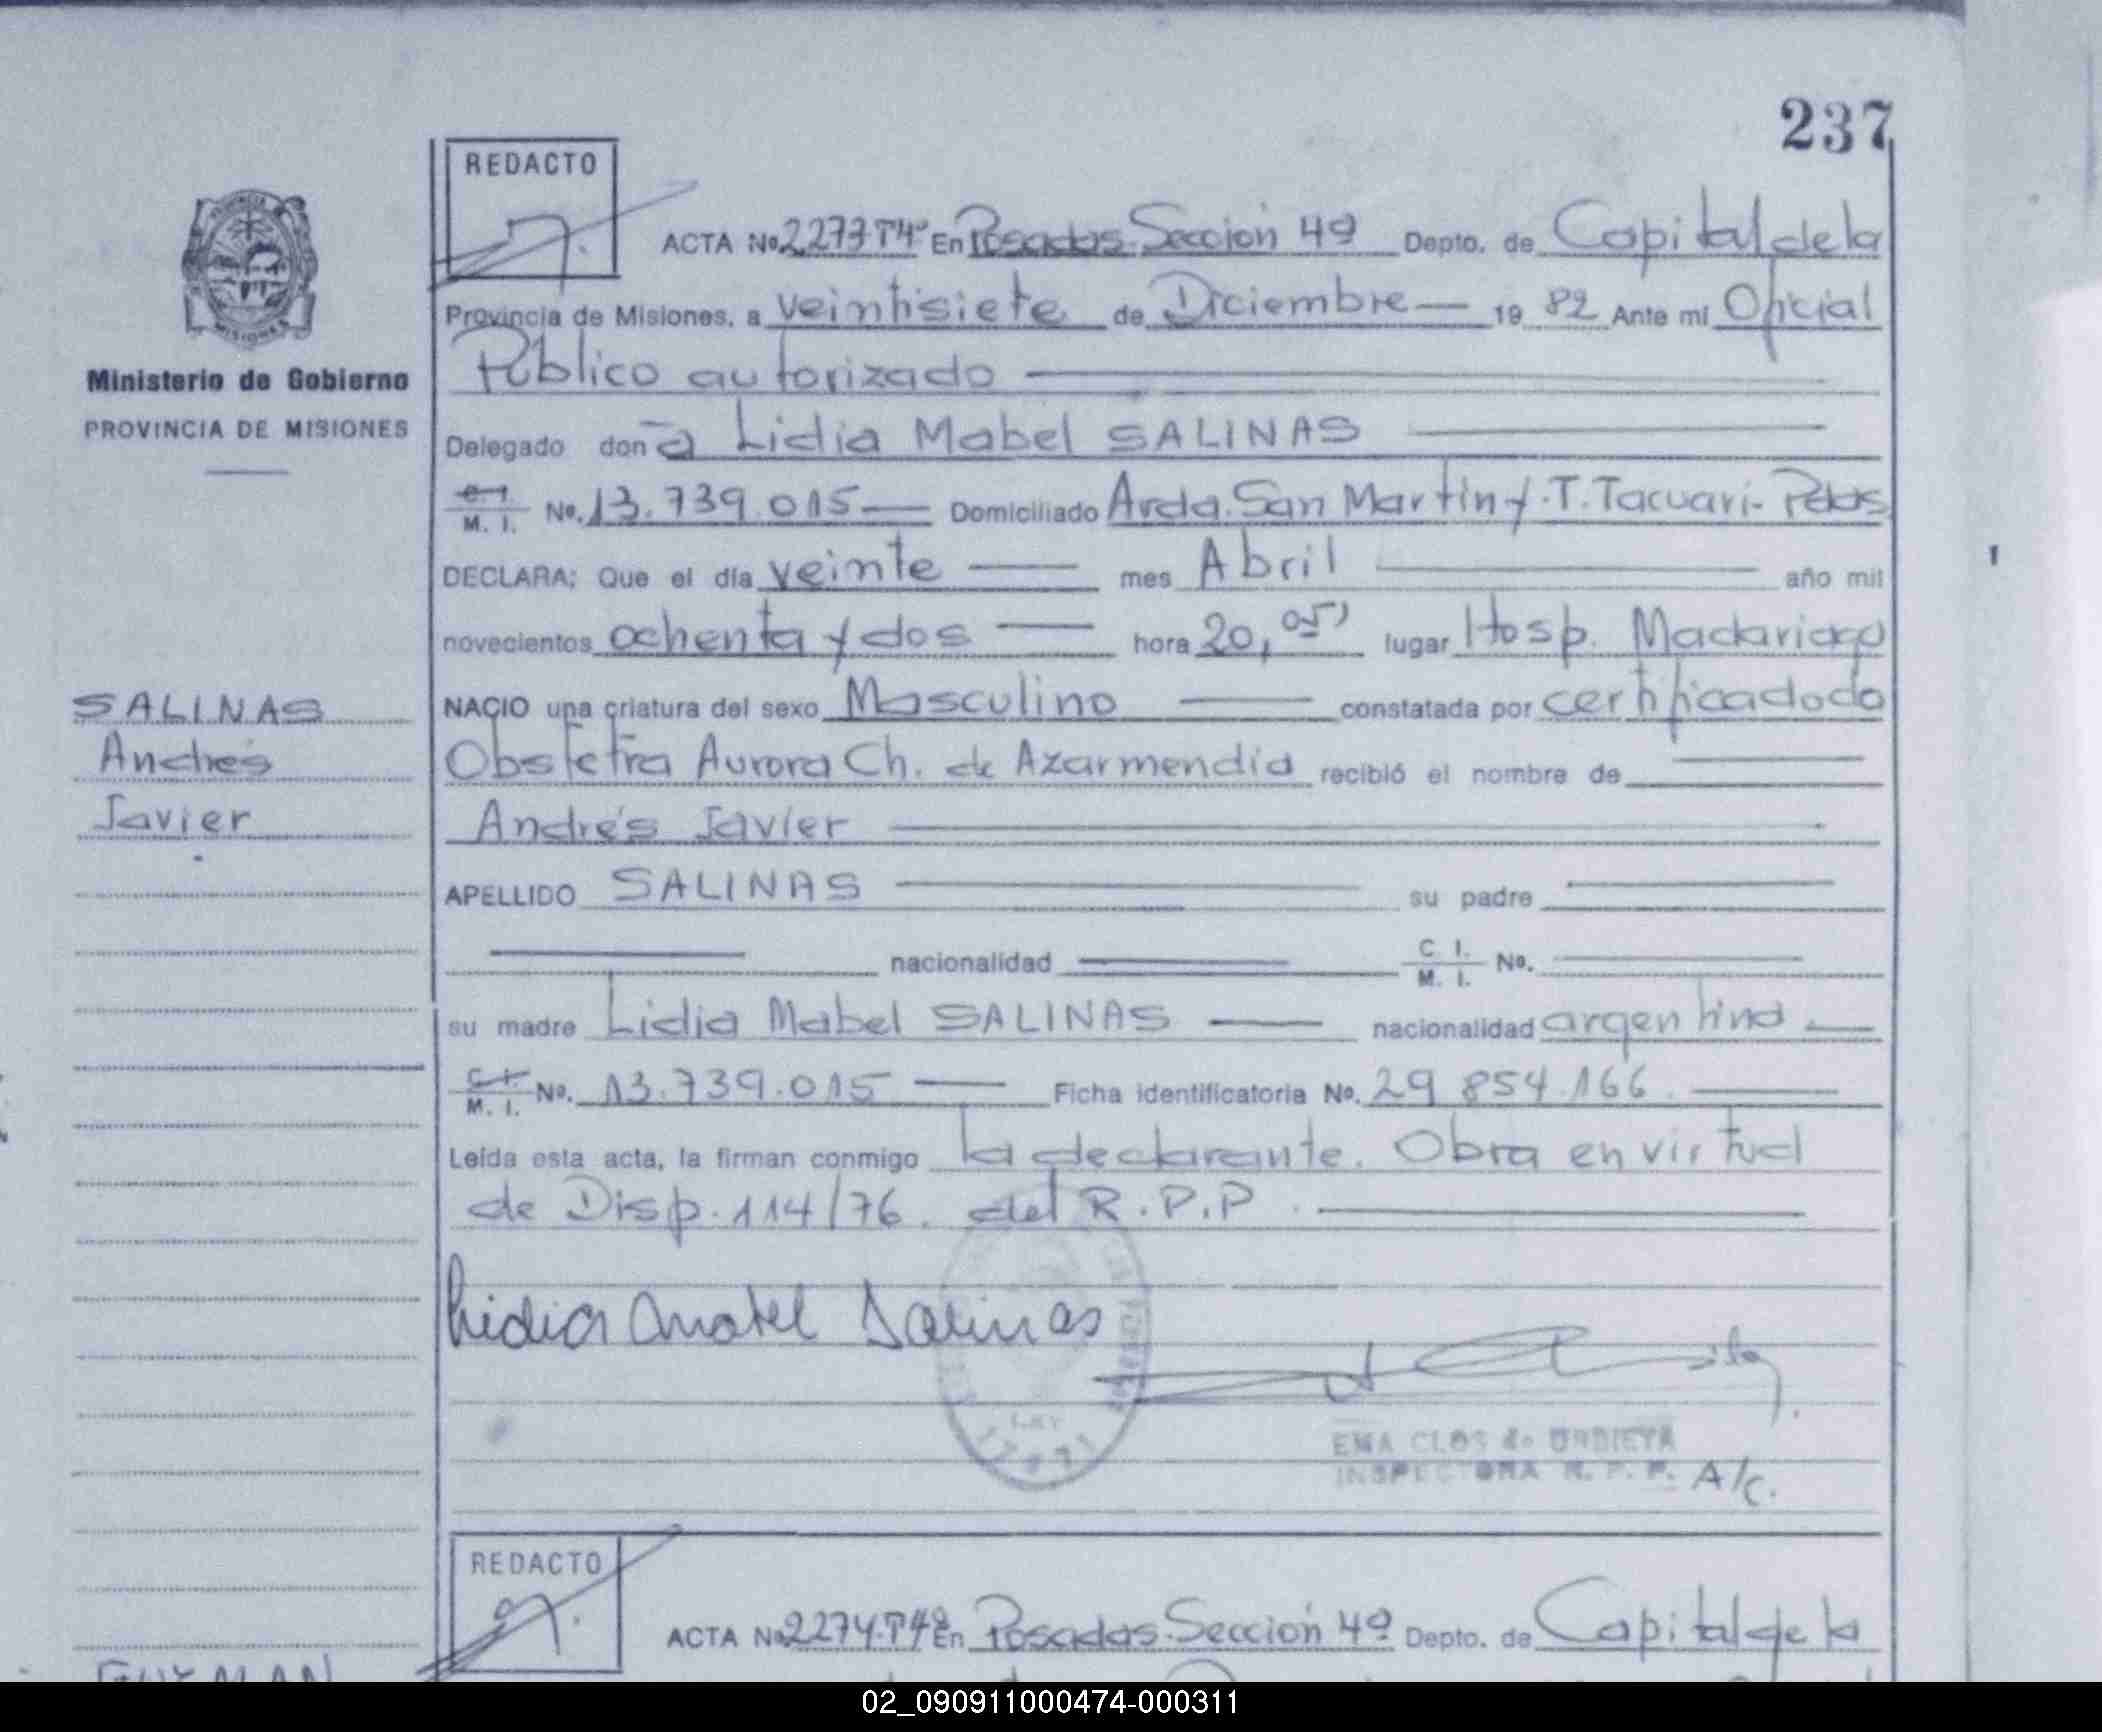 237
REDACTO
ACTA No. 2273 T4º En Posadas. Sección 4ª Depto. de Capital de la
Provincia de Misiones, a veintisiete de Diciembre 19 82 Ante mi Oficial
Público autorizado
Delegado don a Lidia Mabel SALINAS
C. I.
M. I. No. 13.739.015 Domiciliado Avda. San Martin y T. Tacuari- Pdas
DECLARA; Que el día veinte mes Abril año mil
novecientos ochenta y dos hora 20,05 lugar Hosp. Madariaga
NACIO una criatura del sexo Masculino constatada por certificado do
Obstetra Aurora Ch. de Azarmendia recibió el nombre de
Andrés Javier
APELLIDO SALINAS su padre
nacionalidad C I. M. I. No.
su madre Lidia Mabel SALINAS nacionalidad argentina
C. I.
M. I. No. 13.739.015 Ficha identificatoria No. 29 854.166.
Leída esta acta, la firman conmigo la declarante. Obra en virtud
de Disp. 114/76. del R.P.P.
Lidia Mabel Salinas
EMA CLOS de URDIETA
INSPECTORA R. P. P. A/C.
Ministerio de Gobierno
PROVINCIA DE MISIONES
SALINAS
Andrés
Javier
REDACTO
ACTA No. 2274. T4º En Posadas. Sección 4ª Depto. de Capital de la
02_090911000474-000311